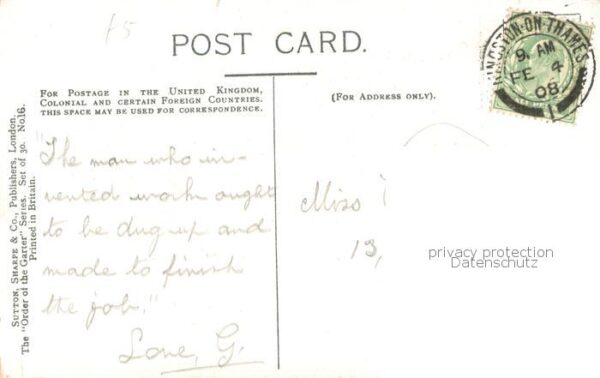 £5
POST CARD.
FOR POSTAGE IN THE UNITED KINGDOM,
COLONIAL AND CERTAIN FOREIGN COUNTRIES.
THIS SPACE MAY BE USED FOR CORRESPONDENCE.
(FOR ADDRESS ONLY).
KINGSTON-ON-THAMES
9. AM
FE 4
08
1
"The man who in-
vented work ought
to be dug up and
made to finish
the job."
Love, G.
Miss
13,
privacy protection
Datenschutz
SUTTON, SHARPE & CO., Publishers, London.
The "Order of the Garter" Series. Set of 30. No16.
Printed in Britain.